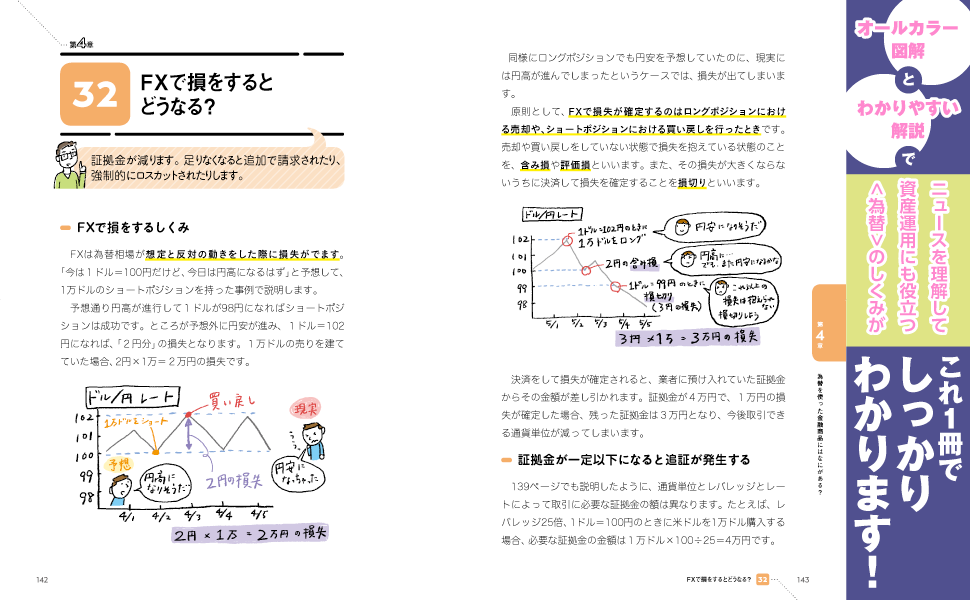 第4章
32
FXで損をすると
どうなる？
証拠金が減ります。足りなくなると追加で請求されたり、
強制的にロスカットされたりします。
FXで損をするしくみ
FXは為替相場が想定と反対の動きをした際に損失がでます。
「今は１ドル＝100円だけど、今日は円高になるはず」と予想して、
1万ドルのショートポジションを持った事例で説明します。
予想通り円高が進行して１ドルが98円になればショートポジ
ションは成功です。ところが予想外に円安が進み、１ドル＝102
円になれば、「２円分」の損失となります。１万ドルの売りを建て
ていた場合、2円×1万＝２万円の損失です。
ドル/円 レート
102
101
100
99
98
1万ドルをショート
買い戻し
現実
予想
円高に
なりそうだ
2円の損失
円安に
なっちゃった
4/1
4/2
4/3
4/4
4/5
2円×1万＝2万円の損失
142
同様にロングポジションでも円安を予想していたのに、現実に
は円高が進んでしまったというケースでは、損失が出てしまいま
す。
原則として、FXで損失が確定するのはロングポジションにおけ
る売却や、ショートポジションにおける買い戻しを行ったときです。
売却や買い戻しをしていない状態で損失を抱えている状態のこと
を、含み損や評価損といいます。また、その損失が大きくならな
いうちに決済して損失を確定することを損切りといいます。
ドル/円レート
102
101
100
99
98
1ドル=102円のときに
1万ドルをロング
円安になりそうだ
2円の含み損
円高に…
でも、また円安になるかな
1ドル=99円のときに
損切り
(3円の損失)
これ以上の
損失は抱えられ
ない
損切りしよう
5/1
5/2
5/3
5/4
5/5
3円×1万＝3万円の損失
決済をして損失が確定されると、業者に預け入れていた証拠金
からその金額が差し引かれます。証拠金が４万円で、１万円の損
失が確定した場合、残った証拠金は３万円となり、今後取引でき
る通貨単位が減ってしまいます。
証拠金が一定以下になると追証が発生する
139ページでも説明したように、通貨単位とレバレッジとレー
トによって取引に必要な証拠金の額は異なります。たとえば、レ
バレッジ25倍、1ドル＝100円のときに米ドルを1万ドル購入する
場合、必要な証拠金の金額は１万ドル×100÷25＝4万円です。
FXで損をするとどうなる？ 32
143
第4章
為替を使った金融商品にはなにがある？
オールカラー
図解
と
わかりやすい
解説
で
ニュースを理解して
資産運用にも役立つ
＜為替＞のしくみが
これ1冊で
しっかり
わかります！